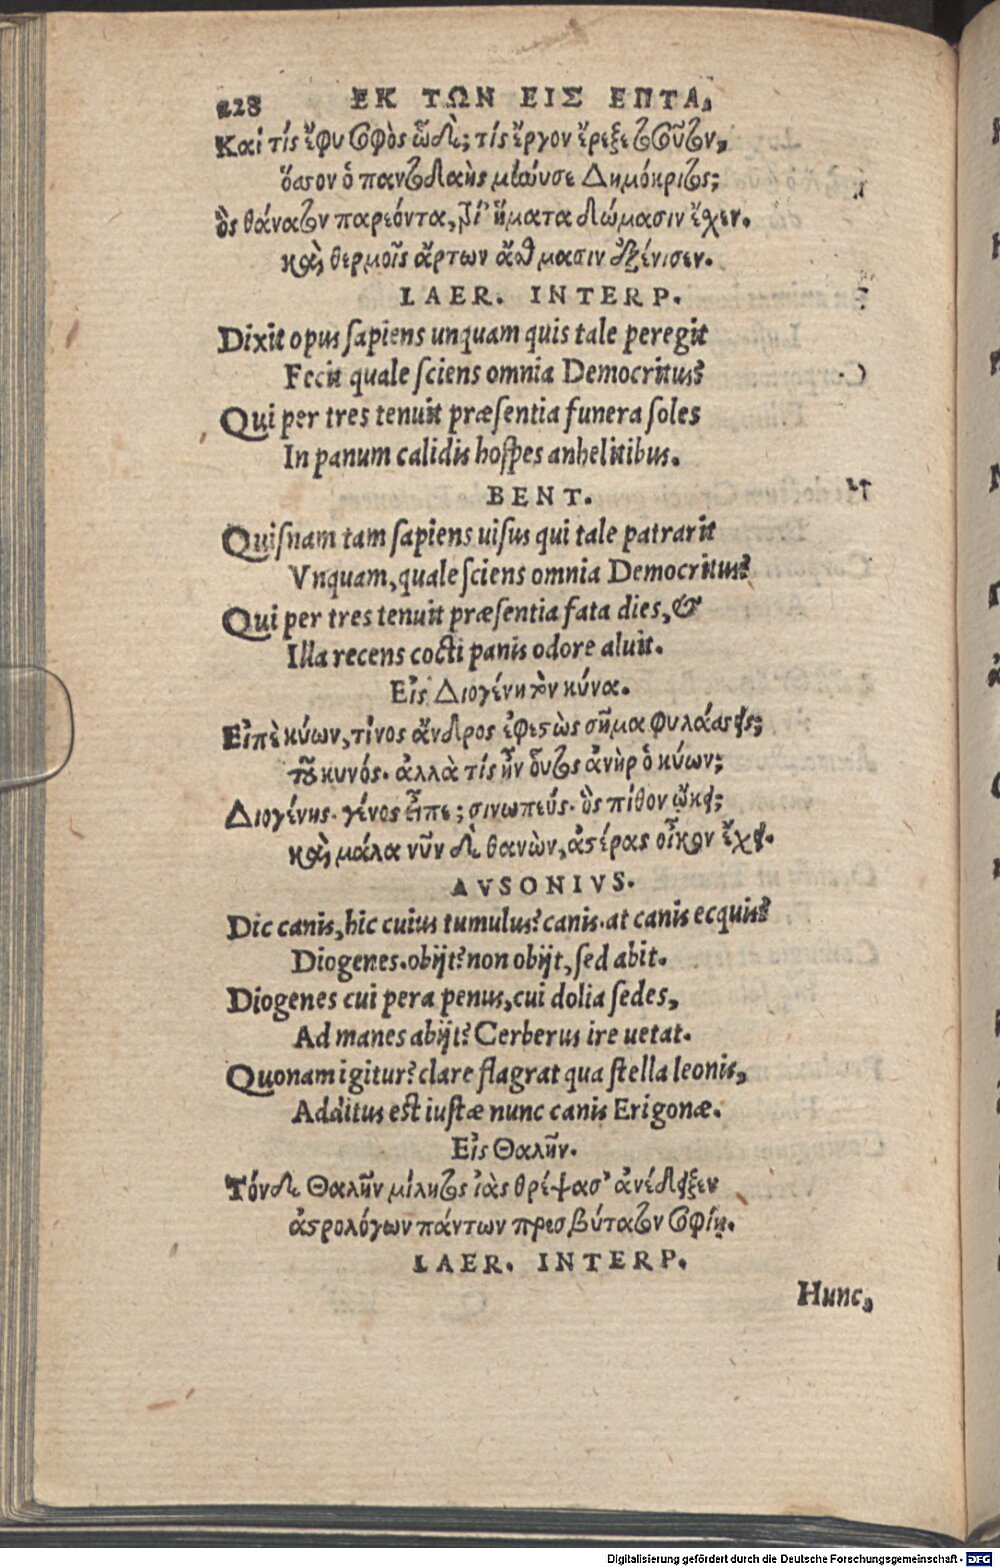 228 ΕΚ ΤΩΝ ΕΙΣ ΕΠΤΑ,
Καὶ τίς ἔφυ σοφὸς ὧδε; τίς ἔργον ἔρεξε τοσοῦτον,
ὅσσον ὁ παντοδαὴς μήνυσε Δημόκριτος;
ὃς θάνατον παρεόντα, τρί' ἤματα δώμασιν ἔσχεν.
καὶ θερμοῖς ἄρτων ἄσθμασιν ἐξένισεν.
LAER. INTERP.
Dixit opus sapiens unquam quis tale peregit
Fecit quale sciens omnia Democritus?
Qui per tres tenuit præsentia funera soles
In panum calidis hospes anhelitibus.
BENT.
Quisnam tam sapiens uisus qui tale patrarit
Vnquam, quale sciens omnia Democritus?
Qui per tres tenuit præsentia fata dies, &
Illa recens cocti panis odore aluit.
Εἰς Διογένη τὸν κύνα.
Εἰπὲ κύων, τίνος ἀνδρὸς ἐφεστὼς σῆμα φυλάσσεις;
τοῦ κυνός. ἀλλὰ τίς ἦν οὗτος ἀνὴρ ὁ κύων;
Διογένης. γένος εἶπε; σινωπεύς. ὃς πίθον ᾤκει;
καὶ μάλα νῦν δὲ θανὼν, ἀστέρας οἶκον ἔχει.
AVSONIVS.
Dic canis, hic cuius tumulus? canis. at canis ecquis?
Diogenes. obijt? non obijt, sed abit.
Diogenes cui pera penus, cui dolia sedes,
Ad manes abijt? Cerberus ire uetat.
Quonam igitur? clare flagrat qua stella leonis,
Additus est iustæ nunc canis Erigonæ.
Εἰς Θαλῆν.
Τόνδε Θαλῆν μίλητος ἰὰς θρέψασ' ἀνέδειξεν
ἀστρολόγων πάντων πρεσβύτατον σοφίῃ.
LAER. INTERP.
Hunc,
Digitalisierung gefördert durch die Deutsche Forschungsgemeinschaft - DFG